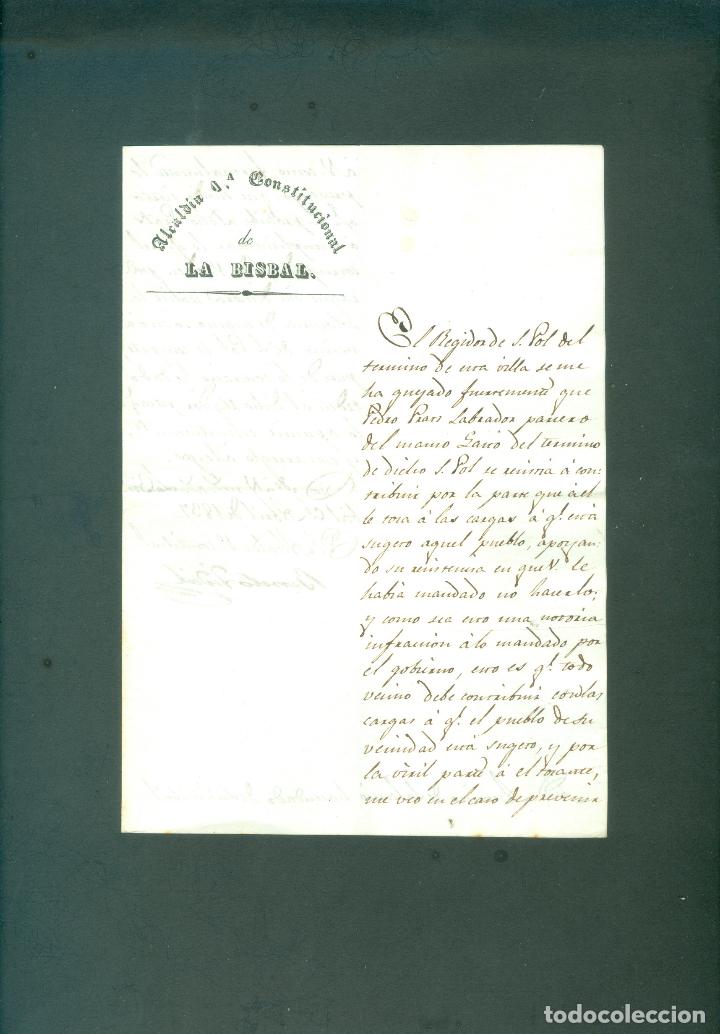 Alcaldía 1.ª Constitucional
de
LA BISBAL.
El Regidor de S. Pol del
termino de esta villa se me
ha quejado fuertemente que
Pedro Prats Labrador
del manso del termino
de dicho S. Pol se resistia á con-
tribuir por la parte que á el
le toca á las cargas á q.e está
sugeto aquel pueblo, apoyan-
do su resistencia en que V. le
habia mandado no hacerlo;
y como sea esto una notoria
infracion á lo mandado por
el gobierno, esto es q.e todo
vecino debe contribuir con las
cargas á q.e el pueblo de su
vecindad está sugeto, y por
la parte á el tocante,
me veo en el caso de prevenir
todocoleccion